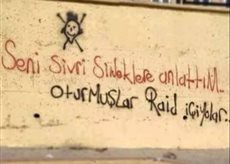 Seni Sivri Sineklere anlattım..
oturmuşlar Raid içiyolar..